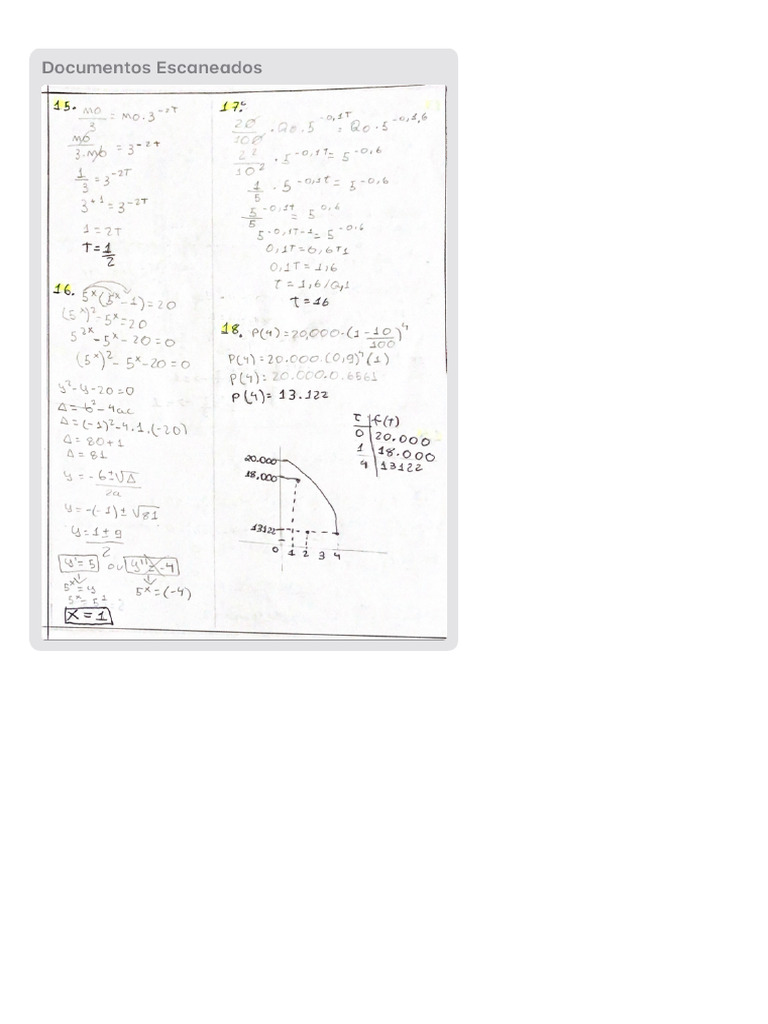 Documentos Escaneados
15.
mo/3 = mo.3^-2T
mo/3.mo = 3^-2T
1/3 = 3^-2T
3^+1 = 3^-2T
1 = 2T
T = 1/2
16. 5^x(5^x-1) = 20
(5^x)^2 - 5^x = 20
5^2x - 5^x - 20 = 0
(5^x)^2 - 5^x - 20 = 0
y²-y-20=0
Δ = b²-4ac
Δ = (-1)²-4.1.(-20)
Δ = 80+1
Δ = 81
y = -b±√Δ/2a
y = -(-1)±√81
y = 1±9/2
y' = 5 ou y'' = -4
5^x = y 5^x = (-4)
5^x = 5^1
x = 1
17.
20/100 . Qo.5^-0,1T = Qo.5^-0,1,6
2²/10² . 5^-0,1T = 5^-0,6
1/5 . 5^-0,1T = 5^-0,6
5^-0,1T/5 = 5^0,6
5^-0,1T-1 = 5^-0,6
0,1T = 0,6T1
0,1T = 1,6
T = 1,6/0,1
T = 16
18. P(4) = 20,000.(1-10/100)^4
P(4) = 20.000.(0,9)^4(1)
P(4) = 20.000.0.6561
P(4) = 13.122
T f(T)
0 20.000
1 18.000
4 13122
20.000
18.000
13122
0 1 2 3 4